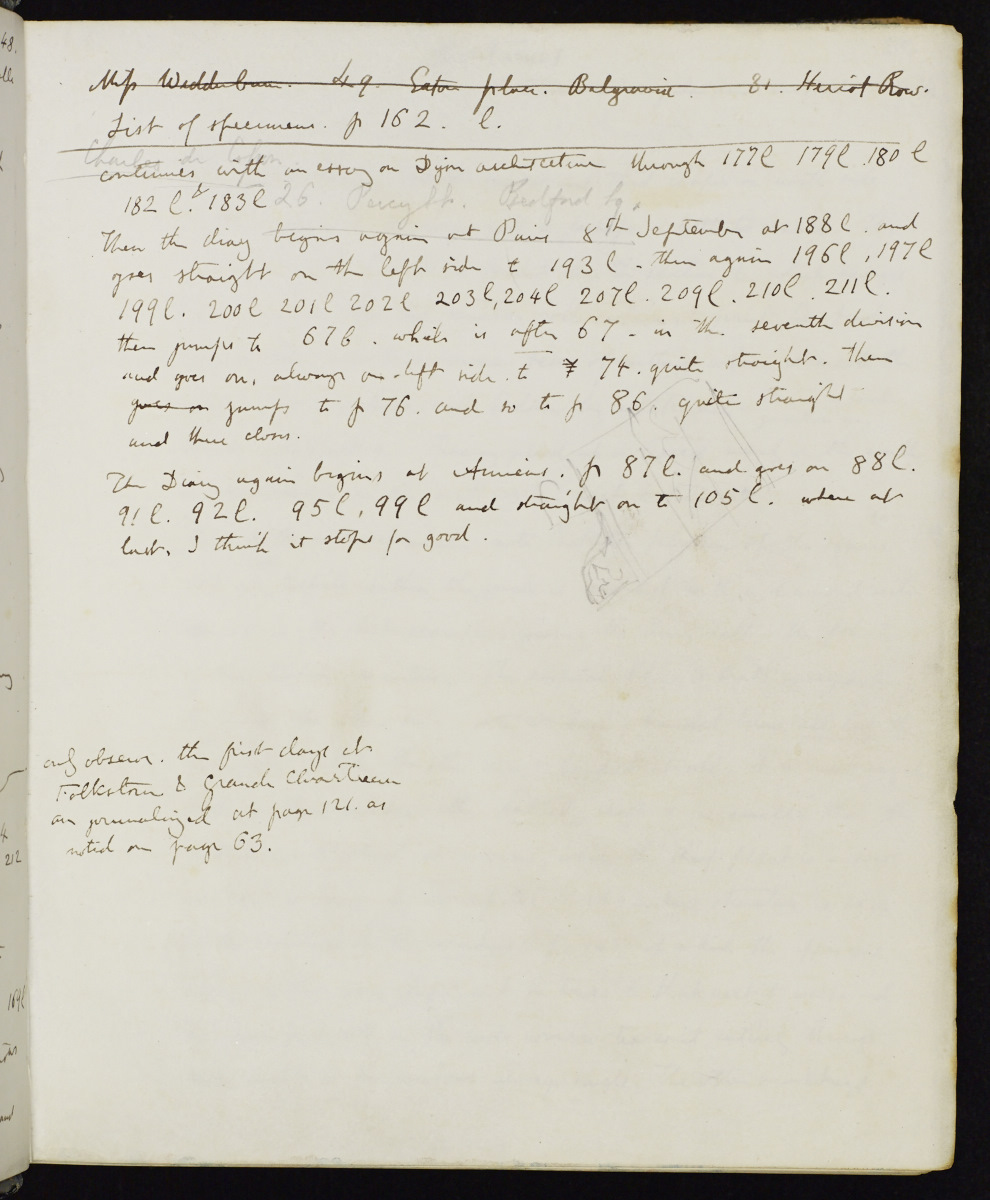 Miss Wedderburn. 49. Eaton place. Belgravia. 81. Heriot Row.
List of specimens. p 162. l.
Charles de
continues with an essay on Dijon architecture through 177l 179l 180l
182 l. & 183l
26. Percy St. Bedford Sq.
Then the diary begins again at Paris 8th September at 188l. and
goes straight on the left side to 193l. then again 196l, 197l
199l. 200l 201l 202l 203l, 204l 207l. 209l. 210l. 211l.
then jumps to 67b. which is after 67. in the seventh division
and goes on, always on left side. to 74. quite straight. Then
goes on jumps to p 76. and so to p 86. quite straight
and there closes.
The Diary again begins at Amiens. p 87l. and goes on 88l.
91l. 92l. 95l, 99l and straight on to 105l. where at
last, I think it stops for good.
only observe. the first days at
Folkstone & Grande Chartreuse
are journalized at page 121. as
noted on page 63.
48.
212
169l
and